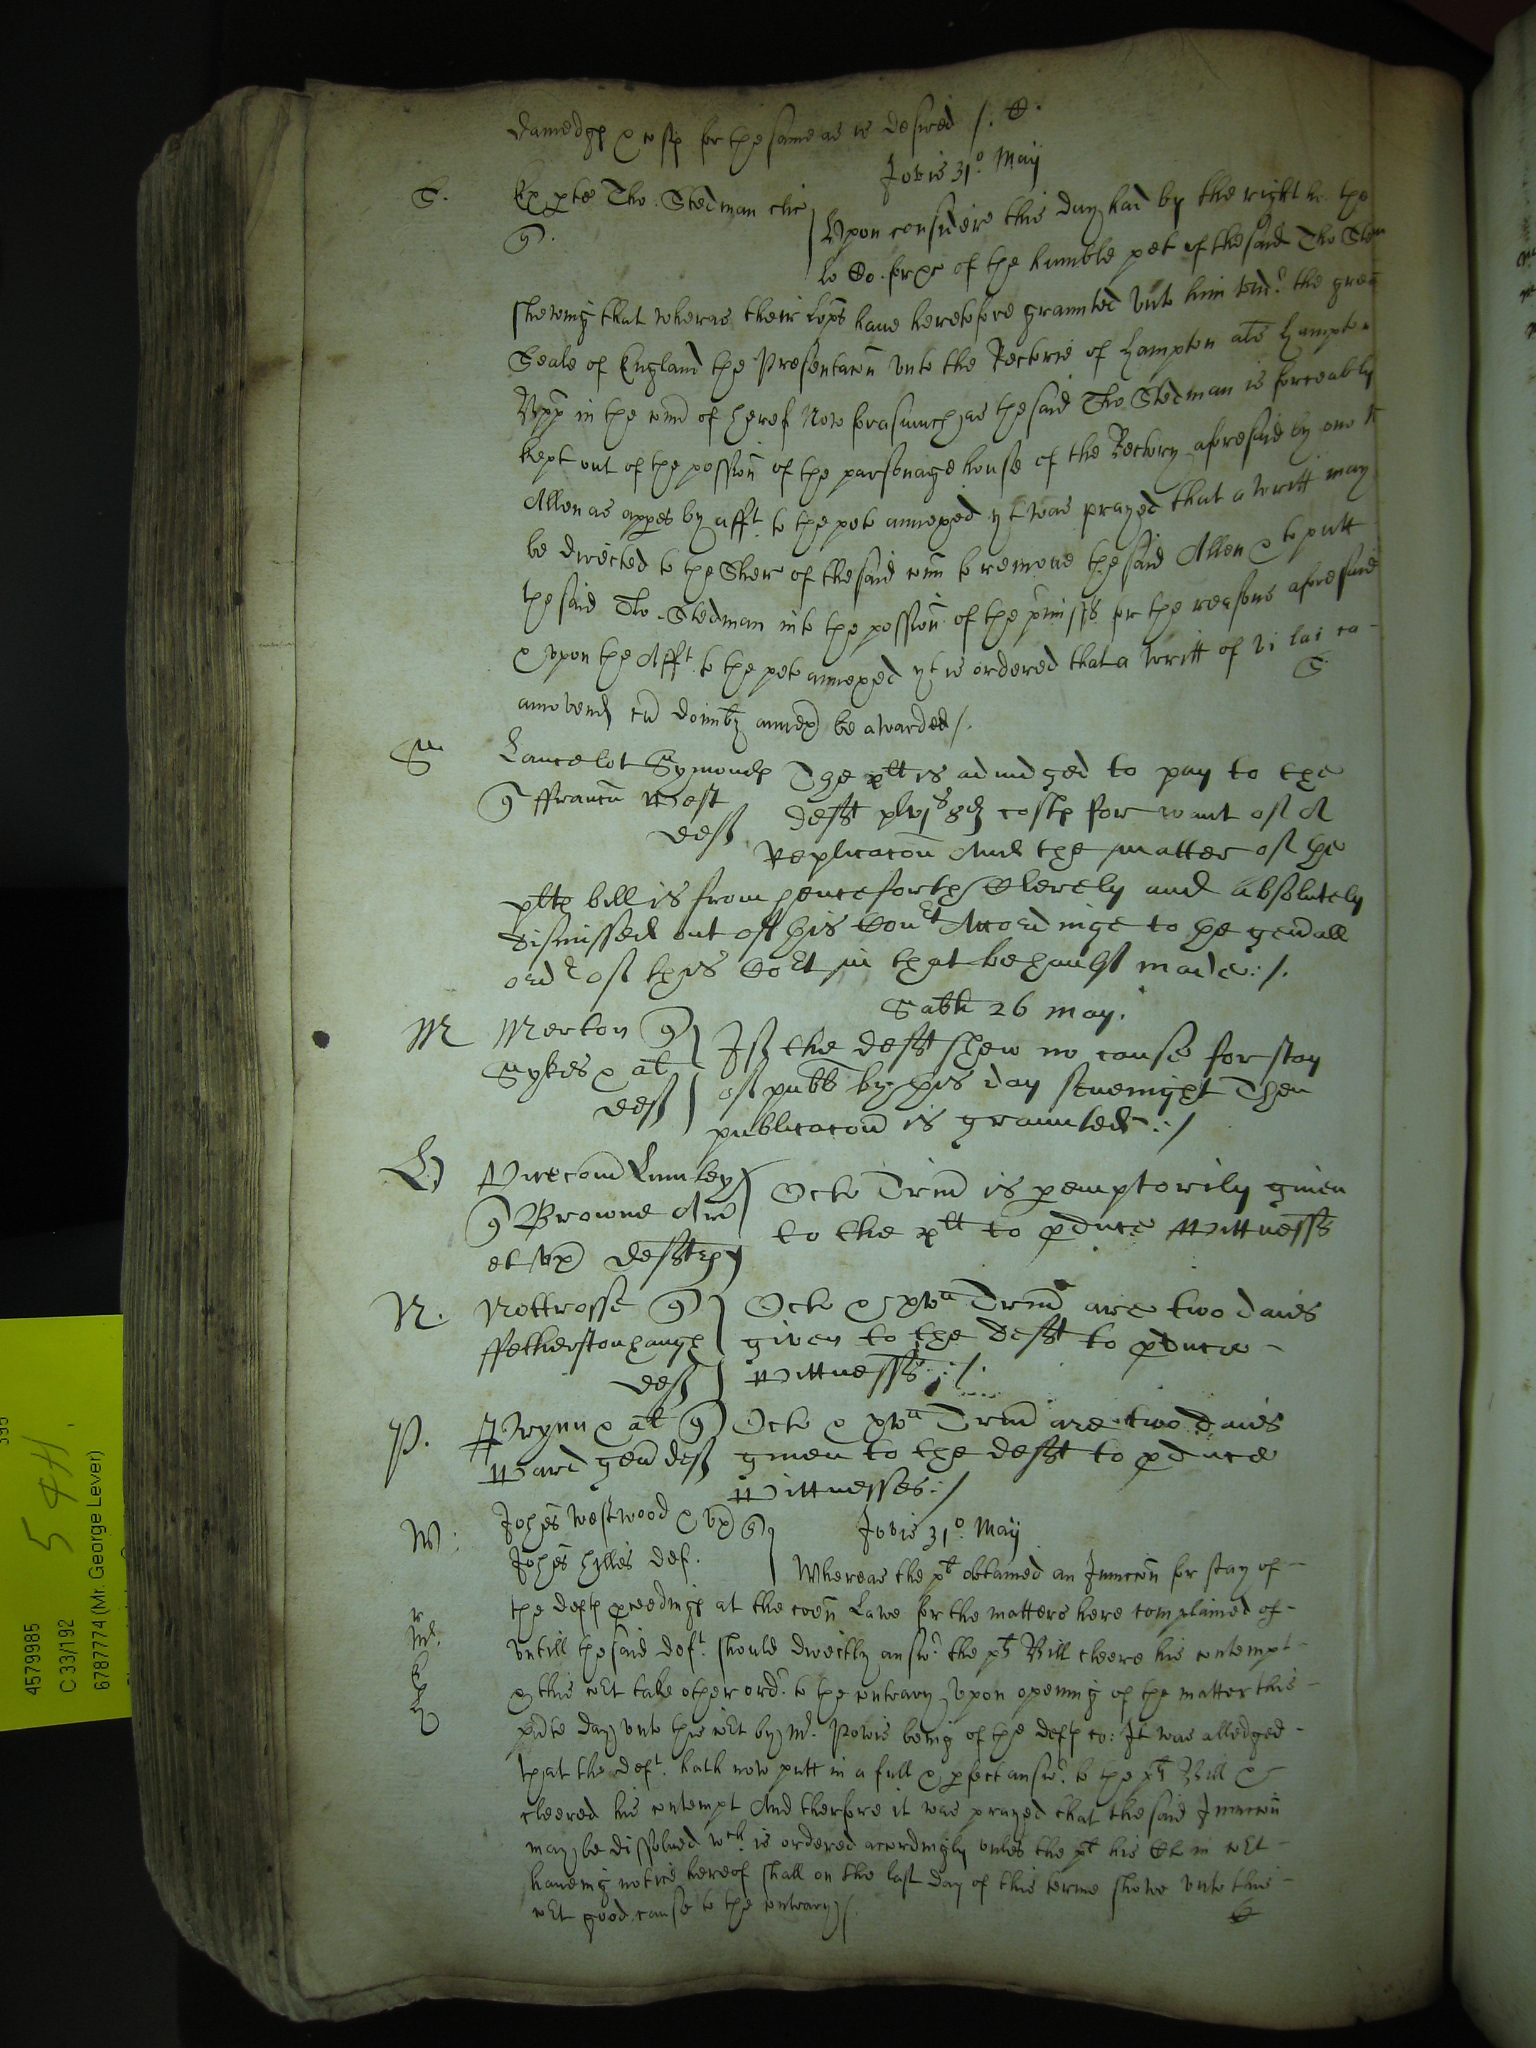 damedges & costs for the same as is desired /. &.
Jovis 31o May
S. Ex pte Tho. Stedman clic
Upon considere this day had by the right ho. the
lo Co. for &c of the humble pet of the said Tho Sted
shewing that wheras their Lopps have heretofore graunted unto him undr the great
Seale of England the Presentacon unto the Rectorie of Lampton als Hampton
in the com of Heref Now forasmuch as the said Tho Stedman is forceably
kept out of the possion of the parsonage house of the Rectory aforesaid by one
Allen as appes by afft to the peto annexed yt was prayed that a writt may
be directed to the Sher of the said com to remove the said Allen & to putt
the said Tho. Stedman into the possion of the pmisss for the reasons aforesaid
& upon the Afft to the peto annexed yt is ordered that a writt of vi lai ca
amovend cu annex be awarded /.
S
Sy Lancelot Symonds The plt is adiudged to pay to the
q ffrancu West deft costs for want of A
deft Replicacon And the matter of the
plts bill is from henceforth Clerely and absolutely
dismissed out of this Court Accordinge to the genall
ordr of this Cort in that behaulf made :/.
Sabti 26 may.
M Merton q If the deft shew no cause for stay
Sykes & al of publ by this day sevenight Then
deft publicacon is graunted :/
L Vicecom Lumley Octo Trin is pemptorily given
q Browne Ar to the plt to pduce Wittnesss
et ux defts
N. Nottrosse q Octo & xvna Trin are two daies
ffetherstonhaugh given to the deft to pduce
deft Wittnesss :/.
P. Prynn & al q Octo & xvna Trin are two daies
Ward gen deft given to the deft to pduce
Wittnesses :/
W: Johes Westwood & ux q Jovis 31o May
Johes Hilles def. Whereas the plt obtained an Iniuncon for stay of
the defts pceedings at the coen Lawe for the matters here complained of
untill the said deft should directly answr the plts Bill cleere his contempt
& this cort take other ordr to the contrary upon opening of the matter this
pnte day unto this cort by Mr. Powis being of the defts co: It was alledged
that the deft. hath now putt in a full & pfect answr to the plts Bill &
cleered his contempt And therfore it was prayed that the said Iniuncon
may be dissolved wch is ordered acordingly unles the plt his Clk in cort
haveing notice hereof shall on the last day of this terme shewe unto this
cort good cause to the contrary /.
4579985
C 33/192
6787774 (Mr. George Lever)